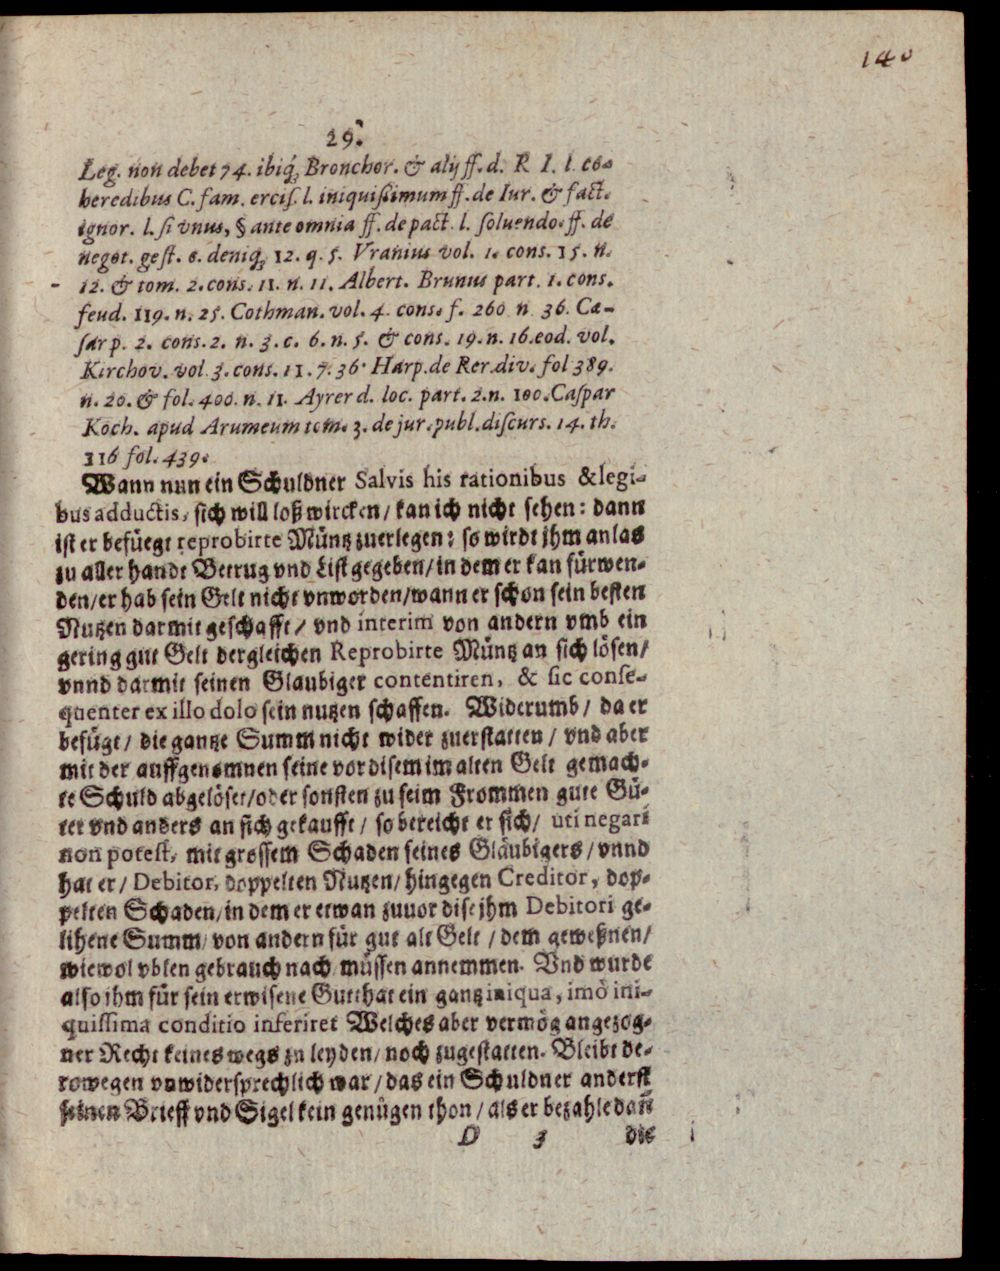 140
29.
Leg. non debet 74. ibiq́; Bronchor. & alij ff. d. R. I. l. co-
heredibus C. fam. ercis. l. iniquißimum ff. de Iur. & fact.
ignor. l. si vnus, § ante omnia ff. de pact. l. soluendo. ff. de
negot. gest. c. deniq; 12. q. 5. Vranius vol. 1. cons. 15. n.
12. & tom. 2. cons. 11. n. 11. Albert. Brunus part. 1. cons.
feud. 119. n. 25. Cothman. vol. 4. cons. f. 260 n 36. Cæ-
sar p. 2. cons. 2. n. 3. c. 6. n. 5. & cons. 19. n. 16. eod. vol.
Kirchov. vol. 3. cons. 11. 7. 36. Harp. de Rer. div. fol 389.
n. 20. & fol. 400. n. 11. Ayrer d. loc. part. 2. n. 100. Caspar
Koch. apud Arumeum tom. 3. de jur. publ. discurs. 14. th.
116 fol. 439.
Wann nun ein Schuldner Salvis his rationibus & legi-
bus adductis, sich will loß wircken / kan ich nicht sehen: dann
ist er befüegt reprobirte Müntz zuerlegen: so wirdt jhm anlas
zu aller handt Betrug vnd List gegeben / in dem er kan fürwen-
den / er hab sein Gelt nicht vnworden / wann er schon sein besten
Nutzen darmit geschafft / vnd interim von andern vmb ein
gering gut Gelt dergleichen Reprobirte Müntz an sich lösen /
vnnd darmit seinen Glaubiger contentiren, & sic conse-
quenter ex illo dolo sein nutzen schaffen. Widerumb / da er
befügt / die gantze Summ nicht wider zuerstatten / vnd aber
mit der auffgenomnen seine vor disem im alten Gelt gemach-
te Schuld abgelöset / oder sonsten zu seim Frommen gute Gü-
ter vnd anders an sich gekaufft / so bereicht er sich / uti negari
non potest, mit grossem Schaden seines Gläubigers / vnnd
hat er / Debitor, doppelten Nutzen / hingegen Creditor, dop-
pelten Schaden / in dem er etwan zuuor dise jhm Debitori ge-
lihene Summ / von andern für gut alt Gelt / dem geweßnen /
wiewol vblen gebrauch nach / müssen annemmen. Vnd wurde
also jhm für sein erwisene Gutthat ein gantz iniqua, imò ini-
quissima conditio inferiret Welches aber vermög angezog-
ner Recht keines wegs zu leyden / noch zugestatten. Bleibt de-
rowegen vnwidersprechlich war / das ein Schuldner anderst
seinen Brieff vnd Sigel kein genügen thon / als er bezahle dañ
D 3 die